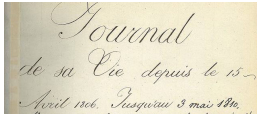 Journal
de sa Vie depuis le 15
Avril 1806. Jusqu'au 3 mai 1810.